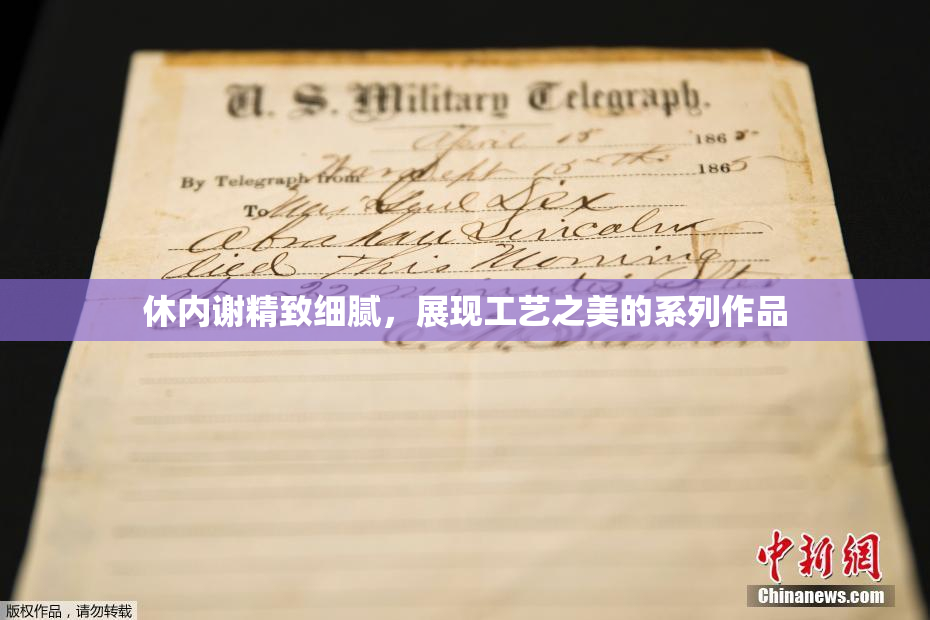 U. S. Military Telegraph.
April 15 1865
By Telegraph from War Dept 15th 1865
To Maj Genl Dix
Abraham Lincoln
died This Morning
at 22 minutes After
休内谢精致细腻，展现工艺之美的系列作品
中新网
Chinanews.com
版权作品，请勿转载